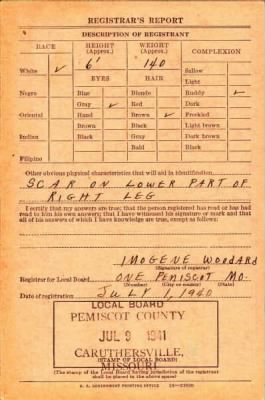 REGISTRAR'S REPORT
DESCRIPTION OF REGISTRANT
RACE HEIGHT (Approx.) WEIGHT (Approx.) COMPLEXION
White ✓ 6' 140 Sallow
EYES HAIR Light
Negro Blue Blonde Ruddy ✓
Gray ✓ Red Dark
Oriental Hazel Brown ✓ Freckled
Brown Black Light brown
Indian Black Gray Dark brown
Bald Black
Filipino
Other obvious physical characteristics that will aid in identification
SCAR ON LOWER PART OF
RIGHT LEG
I certify that my answers are true; that the person registered has read or has had
read to him his own answers; that I have witnessed his signature or mark and that
all of his answers of which I have knowledge are true, except as follows:
IMOGENE WOODARD
(Signature of registrar)
Registrar for Local Board ONE PEMISCOT MO.
(Number) (City or county) (State)
Date of registration JULY 1, 1940
LOCAL BOARD
PEMISCOT COUNTY
JUL 9 1941
CARUTHERSVILLE,
(STAMP OF LOCAL BOARD)
MISSOURI
(The stamp of the Local Board having jurisdiction of the registrant
shall be placed in the above space)
U. S. GOVERNMENT PRINTING OFFICE